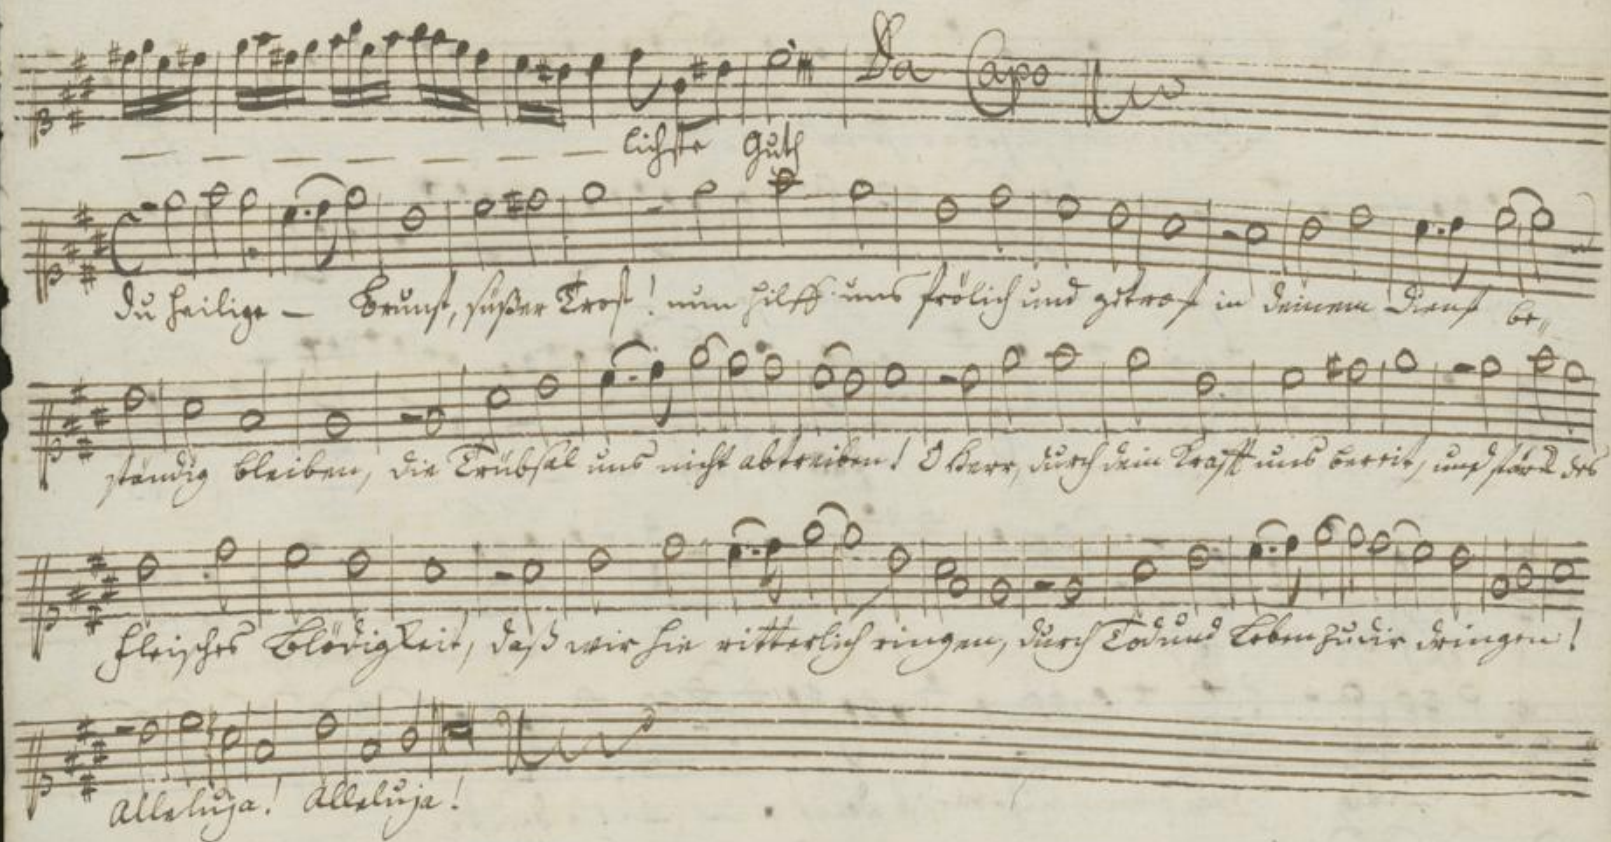 Da Capo
lichste Guth
Du heilige Brunst, süßer Trost! nun hilff uns frölich und getrost in deinem Dienst be-
ständig bleiben, die Trübsal uns nicht abtreiben! O Herr, durch dein Krafft uns bereit, und stärck des
Fleisches Blödigkeit, daß wir hie ritterlich ringen, durch Tod und Leben zu dir dringen!
Alleluja! Alleluja!